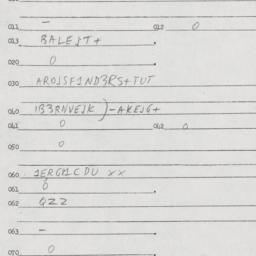 011 — 012 0
013 BALEJT+
020 0
030 AROJSF1ND3RS+TUT
040 1B3RNVEJK)-AKEJG+
041 0 042 0
050 0
060 1ERGM1CDU XX
061 0
062 QZZ
063 —
070 0